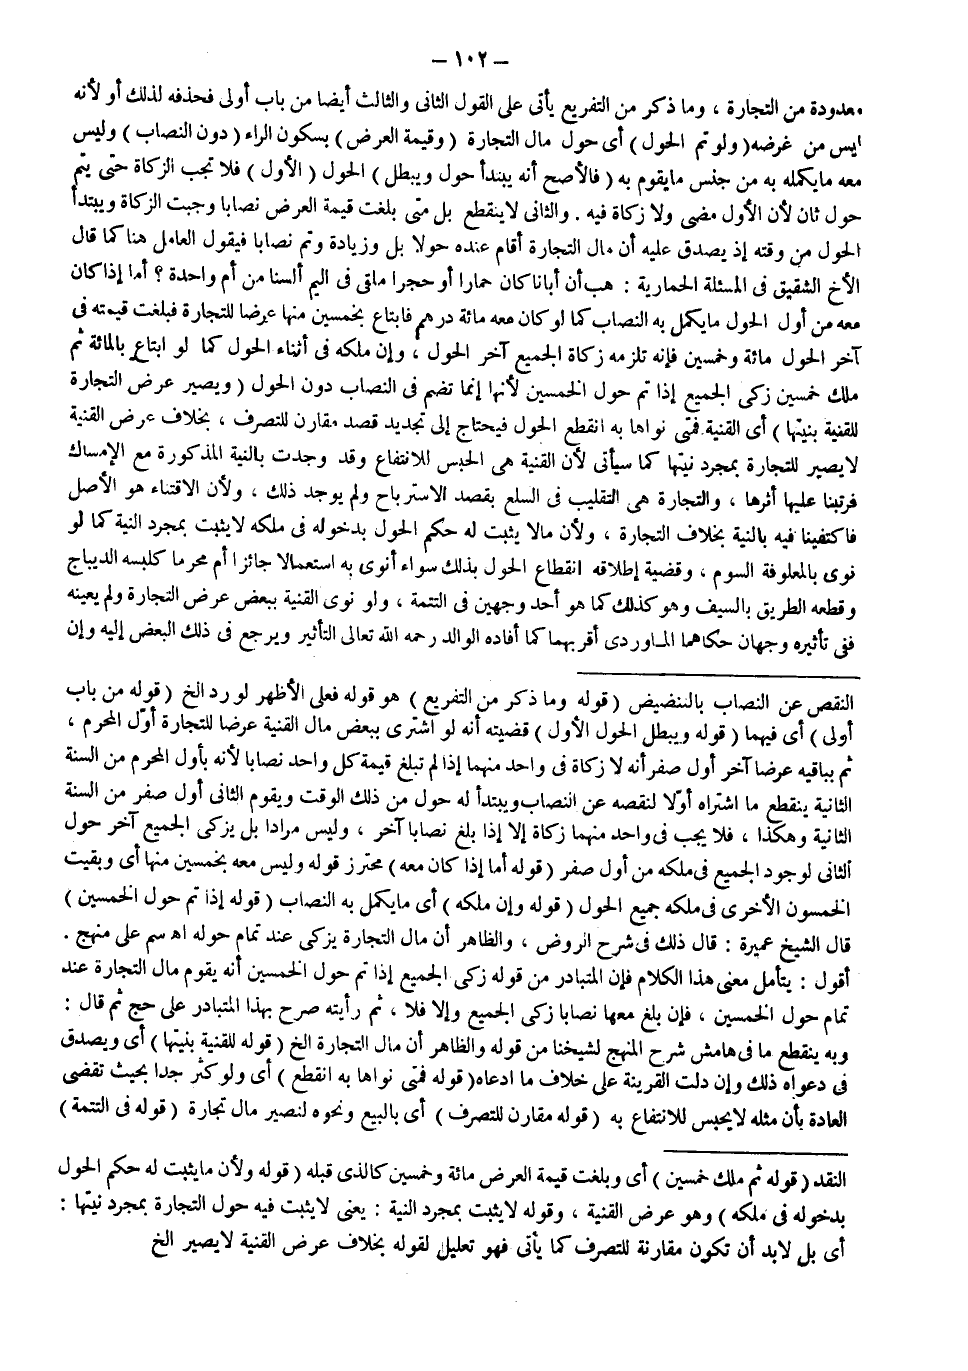 — ١٠٢ —
معدودة من التجارة ، وما ذكر من التفريع يأتى على القول الثانى والثالث أيضا من باب أولى فحذفه لذلك أو لأنه
ليس من غرضه ( ولو تم الحول ) أى حول مال التجارة ( وقيمة العرض ) بسكون الراء ( دون النصاب ) وليس
معه مايكمله به من جنس مايقوم به ( فالأصح أنه يبتدأ حول ويبطل ) الحول ( الأول ) فلا تجب الزكاة حتى يتم
حول ثان لأن الأول مضى ولا زكاة فيه . والثانى لاينقطع بل متى بلغت قيمة العرض نصابا وجبت الزكاة ويبتدأ
الحول من وقته إذ يصدق عليه أن مال التجارة أقام عنده حولا بل وزيادة وتم نصابا فيقول العامل هنا كما قال
الأخ الشقيق فى المسئلة الحمارية : هب أن أبانا كان حمارا أو حجرا ملقى فى اليم ألسنا من أم واحدة ؟ أما إذا كان
معه من أول الحول مايكمل به النصاب كما لو كان معه مائة درهم فابتاع بخمسين منها عرضا للتجارة فبلغت قيمته فى
آخر الحول مائة وخمسين فإنه تلزمه زكاة الجميع آخر الحول ، وإن ملكه فى أثناء الحول كما لو ابتاع بالمائة ثم
ملك خمسين زكى الجميع إذا تم حول الخمسين لأنها إنما تضم فى النصاب دون الحول ( ويصير عرض التجارة
للقنية بنيتها ) أى القنية فمتى نواها به انقطع الحول فيحتاج إلى تجديد قصد مقارن للتصرف ، بخلاف عرض القنية
لايصير للتجارة بمجرد نيتها كما سيأتى لأن القنية هى الحبس للانتفاع وقد وجدت بالنية المذكورة مع الإمساك
فرتبنا عليها أثرها ، والتجارة هى التقليب فى السلع بقصد الاسترباح ولم يوجد ذلك ، ولأن الاقتناء هو الأصل
فاكتفينا فيه بالنية بخلاف التجارة ، ولأن مالا يثبت له حكم الحول بدخوله فى ملكه لايثبت بمجرد النية كما لو
نوى بالمعلوفة السوم ، وقضية إطلاقه انقطاع الحول بذلك سواء أنوى به استعمالا جائزا أم محرما كلبسه الديباج
وقطعه الطريق بالسيف وهو كذلك كما هو أحد وجهين فى التتمة ، ولو نوى القنية ببعض عرض التجارة ولم يعينه
ففى تأثيره وجهان حكاهما الماوردى أقربهما كما أفاده الوالد رحمه الله تعالى التأثير ويرجع فى ذلك البعض إليه وإن
النقص عن النصاب بالتنضيض ( قوله وما ذكر من التفريع ) هو قوله فعلى الأظهر لو رد الخ ( قوله من باب
أولى ) أى فيهما ( قوله ويبطل الحول الأول ) قضيته أنه لو اشترى ببعض مال القنية عرضا للتجارة أوّل المحرم ،
ثم بباقيه عرضا آخر أول صفر أنه لا زكاة فى واحد منهما إذا لم تبلغ قيمة كل واحد نصابا لأنه بأول المحرم من السنة
الثانية ينقطع ما اشتراه أوّلا لنقصه عن النصاب ويبتدأ له حول من ذلك الوقت ويقوم الثانى أول صفر من السنة
الثانية وهكذا ، فلا يجب فى واحد منهما زكاة إلا إذا بلغ نصابا آخر ، وليس مرادا بل يزكى الجميع آخر حول
الثانى لوجود الجميع فى ملكه من أول صفر ( قوله أما إذا كان معه ) محترز قوله وليس معه بخمسين منها أى وبقيت
الخمسون الأخرى فى ملكه جميع الحول ( قوله وإن ملكه ) أى مايكمل به النصاب ( قوله إذا تم حول الخمسين )
قال الشيخ عميرة : قال ذلك فى شرح الروض ، والظاهر أن مال التجارة يزكى عند تمام حوله اهـ سم على منهج .
أقول : يتأمل معنى هذا الكلام فإن المتبادر من قوله زكى الجميع إذا تم حول الخمسين أنه يقوم مال التجارة عند
تمام حول الخمسين ، فإن بلغ معها نصابا زكى الجميع وإلا فلا ، ثم رأيته صرح بهذا المتبادر على حج ثم قال :
وبه ينقطع ما فى هامش شرح المنهج لشيخنا من قوله والظاهر أن مال التجارة الخ ( قوله للقنية بنيتها ) أى ويصدق
فى دعواه ذلك وإن دلت القرينة على خلاف ما ادعاه ( قوله فمتى نواها به انقطع ) أى ولو كثر جدا بحيث تقضى
العادة بأن مثله لايحبس للانتفاع به ( قوله مقارن للتصرف ) أى بالبيع ونحوه لنصير مال تجارة ( قوله فى التتمة )
النقد ( قوله ثم ملك خمسين ) أى وبلغت قيمة العرض مائة وخمسين كالذى قبله ( قوله ولأن مايثبت له حكم الحول
بدخوله فى ملكه ) وهو عرض القنية ، وقوله لايثبت بمجرد النية : يعنى لايثبت فيه حول التجارة بمجرد نيتها :
أى بل لابد أن تكون مقارنة للتصرف كما يأتى فهو تعليل لقوله بخلاف عرض القنية لايصير الخ